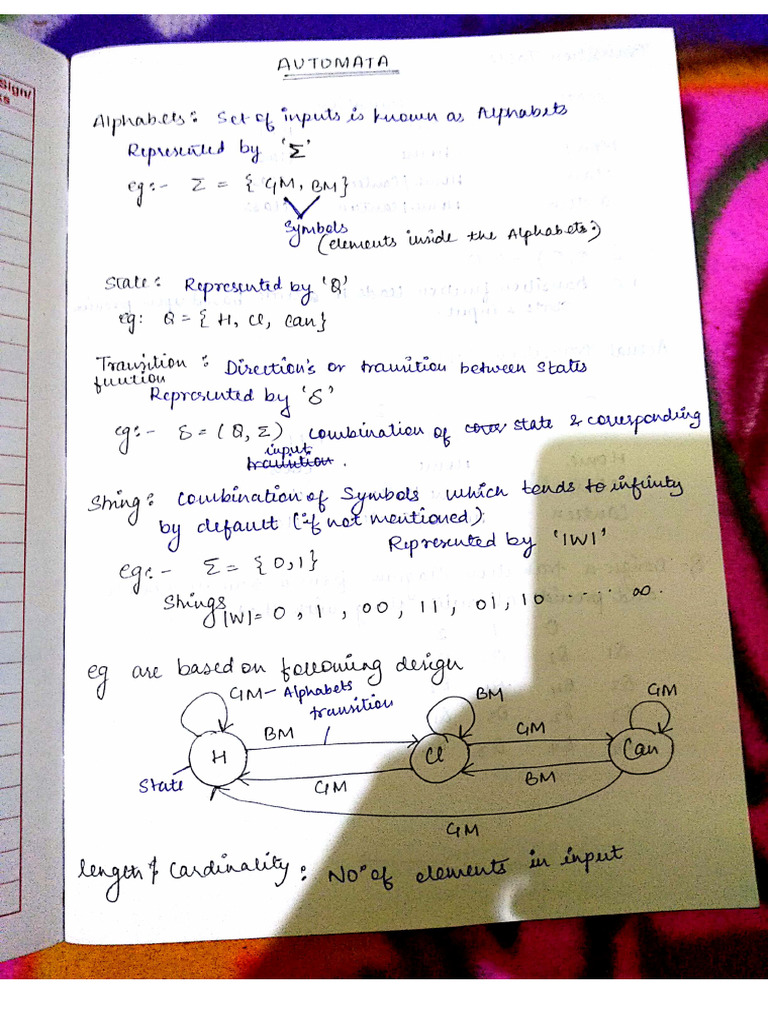 Sign/
ks
AUTOMATA
Alphabets: Set of inputs is known as Alphabets
Represented by 'Σ'
eg:- Σ = {GM, BM}
Symbols
(elements inside the Alphabets:)
State: Represented by 'Q'
eg: Q = {H, Cl, Can}
Transition : Direction's or transition between States
function
Represented by 'δ'
eg:- δ = (Q, Σ) combination of state & corresponding
input
transition .
String: Combination of Symbols which tends to infinity
by default (if not mentioned)
Represented by '|W|'
eg:- Σ = {0,1}
Strings
|W|= 0 , 1 , 00 , 11 , 01 , 10 ...... ∞.
eg are based on following design
GM - Alphabets
transition
BM
GM
BM
GM
H
Cl
Can
State
GM
BM
GM
length / Cardinality : No° of elements in input